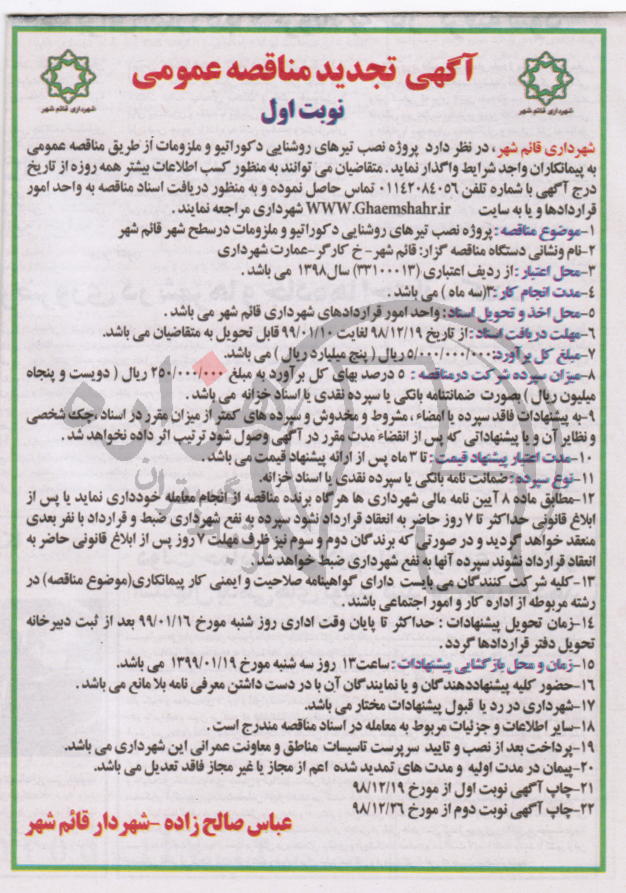 آگهی تجدید مناقصه عمومی
نوبت اول
شهرداری قائم شهر
شهرداری قائم شهر
شهرداری قائم شهر، در نظر دارد پروژه نصب تیرهای روشنایی دکوراتیو و ملزومات از طریق مناقصه عمومی
به پیمانکاران واجد شرایط واگذار نماید . متقاضیان می توانند به منظور کسب اطلاعات بیشتر همه روزه از تاریخ
درج آگهی با شماره تلفن ۰۱۱۴۲۰۸۴۰۵۶ تماس حاصل نموده و به منظور دریافت اسناد مناقصه به واحد امور
قراردادها و یا به سایت WWW.Ghaemshahr.ir شهرداری مراجعه نمایند .
۱-موضوع مناقصه : پروژه نصب تیرهای روشنایی دکوراتیو و ملزومات درسطح شهر قائم شهر
۲-نام ونشانی دستگاه مناقصه گزار: قائم شهر- خ کارگر-عمارت شهرداری
۳- محل اعتبار : از ردیف اعتباری (۳۳۱۰۰۰۱۳) سال۱۳۹۸ می باشد .
۴-مدت انجام کار :۳(سه ماه ) می باشد .
۵-محل اخذ و تحویل اسناد : واحد امور قراردادهای شهرداری قائم شهر می باشد .
۶-مهلت دریافت اسناد : از تاریخ ۹۸/۱۲/۱۹ لغایت ۹۹/۰۱/۱۰ قابل تحویل به متقاضیان می باشد.
۷-مبلغ کل برآورد:۵/۰۰۰/۰۰۰/۰۰۰ ریال ( پنج میلیارد ریال ) می باشد.
۸-میزان سپرده شرکت درمناقصه : ۵ درصد بهای کل برآورد به مبلغ ۲۵۰/۰۰۰/۰۰۰ ریال ( دویست و پنجاه
میلیون ریال ) بصورت ضمانتنامه بانکی یا سپرده نقدی یا اسناد خزانه می باشد .
۹-به پیشنهادات فاقد سپرده یا امضاء ، مشروط و مخدوش و سپرده های کمتر از میزان مقرر در اسناد ،چک شخصی
و نظایر آن و یا پیشنهاداتی که پس از انقضاء مدت مقرر در آگهی وصول شود ترتیب اثر داده نخواهد شد .
۱۰-مدت اعتبار پیشنهاد قیمت : تا ۳ ماه پس از ارائه پیشنهاد قیمت می باشد .
۱۱-نوع سپرده : ضمانت نامه بانکی یا سپرده نقدی یا اسناد خزانه.
۱۲-مطابق ماده ۸ آیین نامه مالی شهرداری ها هرگاه برنده مناقصه از انجام معامله خودداری نماید یا پس از
ابلاغ قانونی حداکثر تا ۷ روز حاضر به انعقاد قرارداد نشود سپرده به نفع شهرداری ضبط و قرارداد با نفر بعدی
منعقد خواهد گردید و در صورتی که برندگان دوم و سوم نیز ظرف مهلت ۷ روز پس از ابلاغ قانونی حاضر به
انعقاد قرارداد نشوند سپرده آنها به نفع شهرداری ضبط خواهد شد .
۱۳-کلیه شرکت کنندگان می بایست دارای گواهینامه صلاحیت و ایمنی کار پیمانکاری(موضوع مناقصه) در
رشته مربوطه از اداره کار و امور اجتماعی باشند .
۱۴-زمان تحویل پیشنهادات : حداکثر تا پایان وقت اداری روز شنبه مورخ ۹۹/۰۱/۱۶ بعد از ثبت دبیرخانه
تحویل دفتر قراردادها گردد .
۱۵-زمان و محل بازگشایی پیشنهادات : ساعت۱۳ روز سه شنبه مورخ ۱۳۹۹/۰۱/۱۹ می باشد.
۱۶-حضور کلیه پیشنهاددهندگان و یا نمایندگان آن با در دست داشتن معرفی نامه بلا مانع می باشد .
۱۷-شهرداری در رد یا قبول پیشنهادات مختار می باشد.
۱۸-سایر اطلاعات و جزئیات مربوط به معامله در اسناد مناقصه مندرج است .
۱۹-پرداخت بعد از نصب و تایید سرپرست تاسیسات مناطق و معاونت عمرانی این شهرداری می باشد.
۲۰-پیمان در مدت اولیه و مدت های تمدید شده اعم از مجاز یا غیر مجاز فاقد تعدیل می باشد.
۲۱-چاپ آگهی نوبت اول از مورخ ۹۸/۱۲/۱۹
۲۲-چاپ آگهی نوبت دوم از مورخ ۹۸/۱۲/۲۶
عباس صالح زاده -شهردار قائم شهر